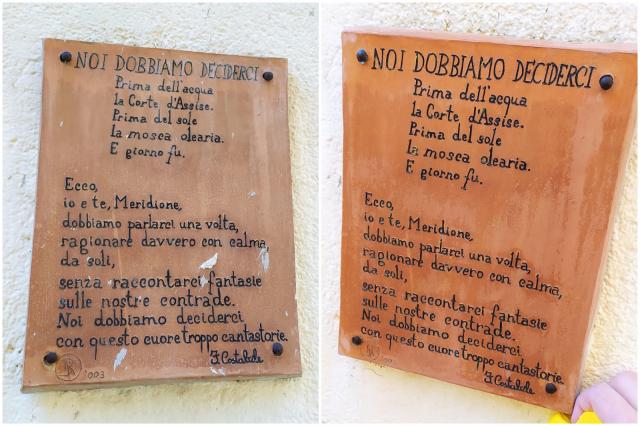 NOI DOBBIAMO DECIDERCI
Prima dell'acqua
la Corte d'Assise.
Prima del sole
la mosca olearia.
E giorno fu.
Ecco,
io e te, Meridione,
dobbiamo parlarci una volta,
ragionare davvero con calma,
da soli,
senza raccontarci fantasie
sulle nostre contrade.
Noi dobbiamo deciderci
con questo cuore troppo cantastorie.
NOI DOBBIAMO DECIDERCI
Prima dell'acqua
la Corte d'Assise.
Prima del sole
la mosca olearia.
E giorno fu.
Ecco,
io e te, Meridione,
dobbiamo parlarci una volta,
ragionare davvero con calma,
da soli,
senza raccontarci fantasie
sulle nostre contrade.
Noi dobbiamo deciderci
con questo cuore troppo cantastorie.